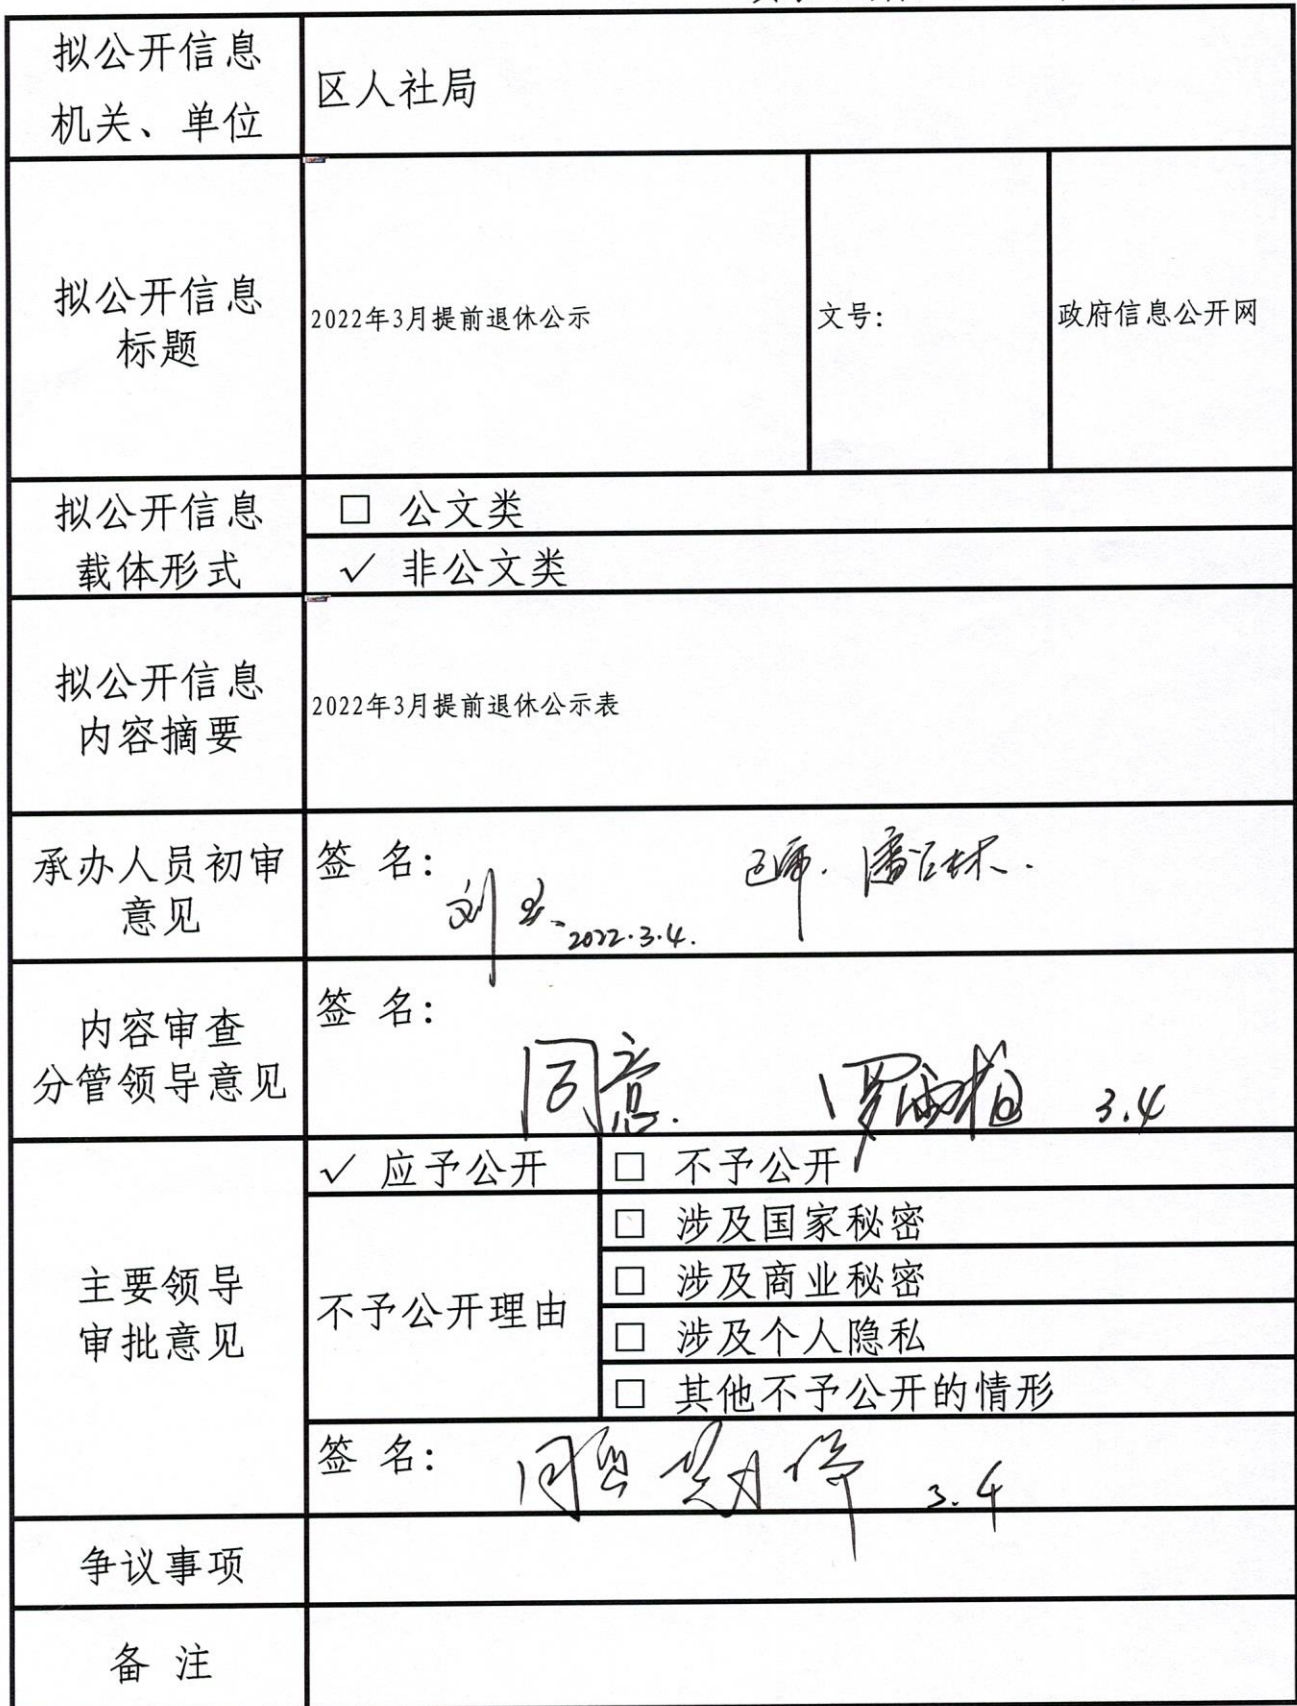 拟公开信息
机关、单位
区人社局
拟公开信息
标题
2022年3月提前退休公示
文号:
政府信息公开网
拟公开信息
载体形式
□ 公文类
√ 非公文类
拟公开信息
内容摘要
2022年3月提前退休公示表
承办人员初审
意见
签 名:
刘
2022.3.4.
内容审查
分管领导意见
签 名:
同意.
3.4
主要领导
审批意见
√ 应予公开
□ 不予公开
不予公开理由
□ 涉及国家秘密
□ 涉及商业秘密
□ 涉及个人隐私
□ 其他不予公开的情形
签 名:
同意
3.4
争议事项
备 注